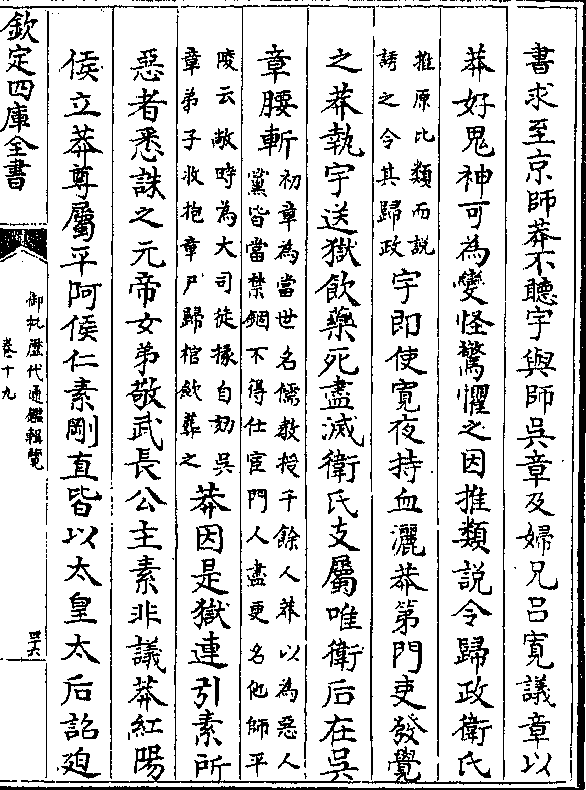 書求至京師莽不聽宇與師吳章及婦兄呂寛議章以
莽好鬼神可為變怪驚懼之因推類説令歸政衛氏
推原比類而說
誘之令其歸政
宇即使寛夜持血灑莽第門吏發覺
之莽執宇送獄飲藥死盡滅衛氏支屬唯衛后在吳
章腰斬
初章為當世名儒教授千餘人莽以為惡人
黨皆當禁錮不得仕宦門人盡更名他師平
陵云敞時為大司徒掾自劾吳
章弟子收抱章尸歸棺斂葬之
莽因是獄連引素所
惡者悉誅之元帝女弟敬武長公主素非議莽紅陽
侯立莽尊屬平阿侯仁素剛直皆以太皇太后詔廹
欽定四庫全書
御批歷代通鑑輯覽
卷十九